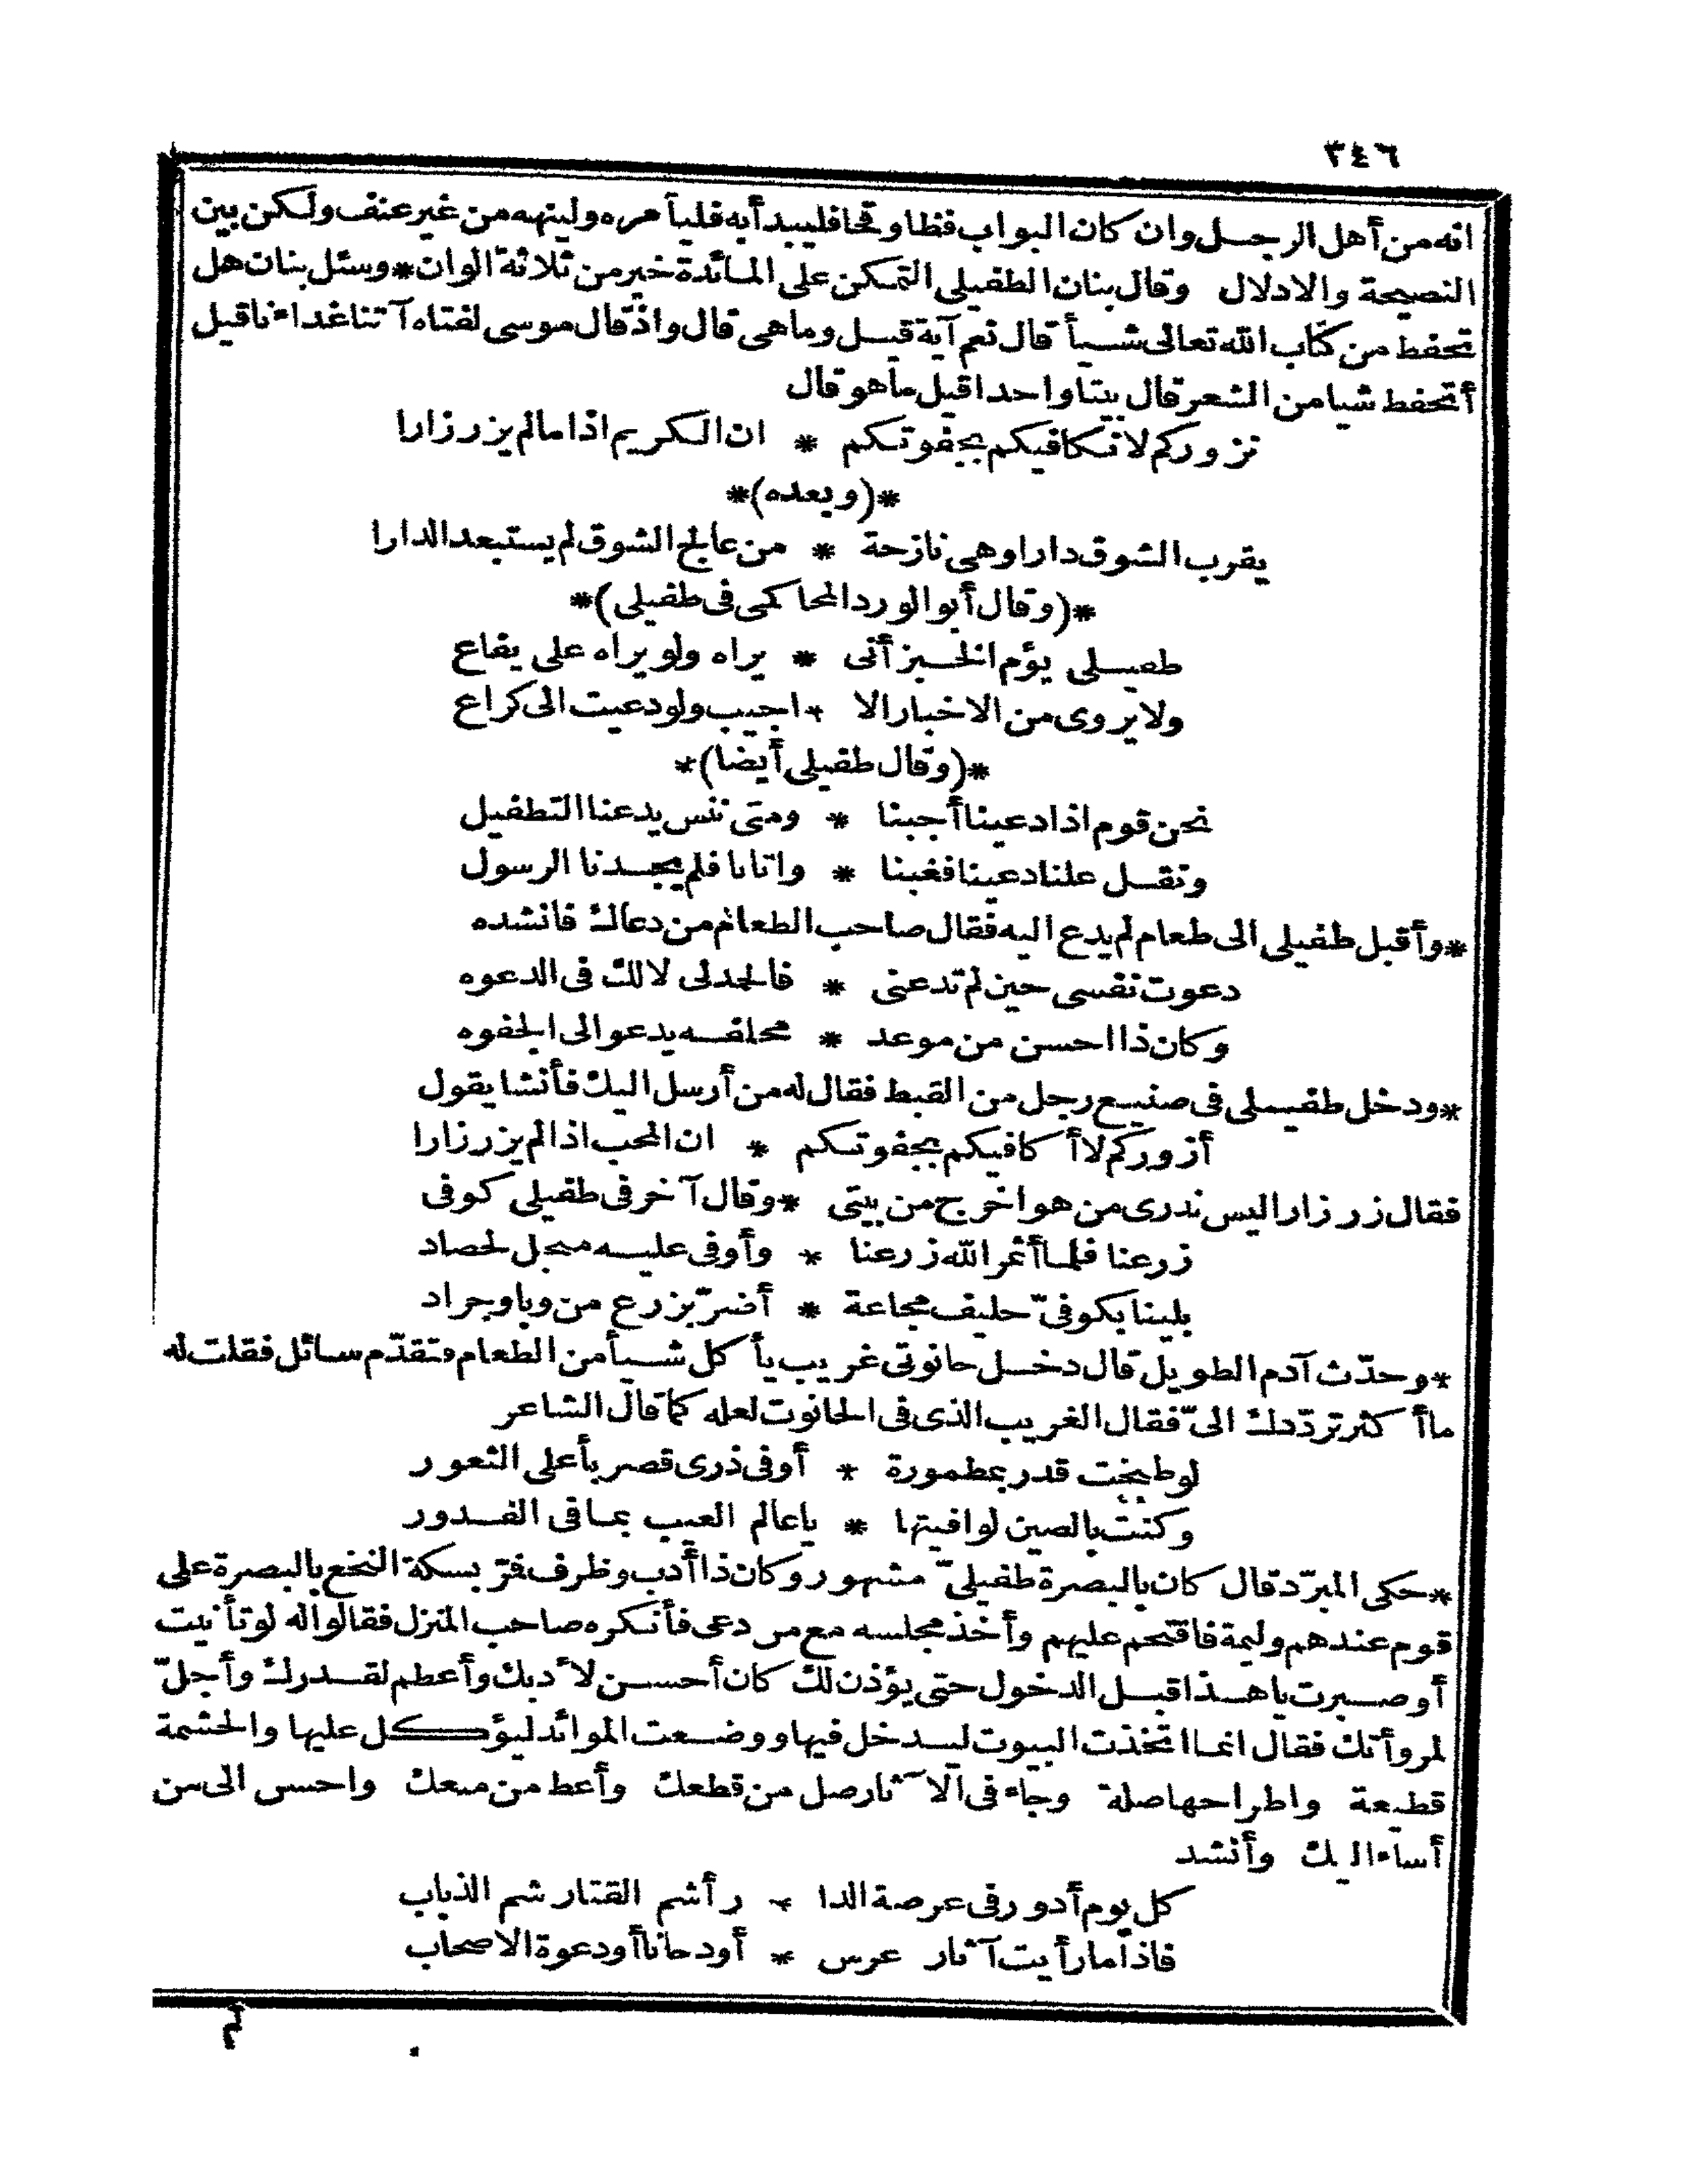 ٣٤٦
انه من أهل الرجل وان كان البواب فظا وقحا فليبدأ به فليأمره ولينهه من غير عنف ولكن بين
النصيحة والادلال وقال بنان الطفيلى التمكن على المائدة خير من ثلاثة الوان * وسئل بنان هل
تحفظ من كتاب الله تعالى شيأ قال نعم آية قيل وما هى قال واذ قال موسى لفتاه آتنا غداءنا قيل
أتحفظ شيا من الشعر قال بيتا واحدا قيل ما هو قال
نزوركم لا نكافيكم بجفوتكم * ان الكريم اذا ما لم يزر زارا
*(وبعده)*
يقرب الشوق دارا وهى نازحة * من عالج الشوق لم يستبعد الدارا
*(وقال أبو الورد المحاكمى فى طفيلى)*
طفيلى يؤم الخبز أنى * يراه ولو يراه على يفاع
ولا يروى من الاخبار الا * اجيب ولو دعيت الى كراع
*(وقال طفيلى أيضا)*
نحن قوم اذا دعينا أجبنا * ومتى ننس يدعنا التطفيل
ونقل علنا دعينا فغبنا * واتانا فلم يجدنا الرسول
*وأقبل طفيلى الى طعام لم يدع اليه فقال صاحب الطعام من دعاك فانشده
دعوت نفسى حين لم تدعنى * فالحمد لى لا لك فى الدعوه
وكان ذا احسن من موعد * مخلفه يدعو الى الجفوه
*ودخل طفيلى فى صنيع رجل من القبط فقال له من أرسل اليك فأنشا يقول
أزوركم لا أكافيكم بجفوتكم * ان المحب اذا لم يزر زارا
فقال زر زارا ليس ندرى من هو اخرج من بيتى * وقال آخر فى طفيلى كوفى
زرعنا فلما أثمر الله زرعنا * وأوفى عليه منجل لحصاد
بلينا بكوفىّ حليف مجاعة * أضرّ بزرع من وبا وجراد
*وحدّث آدم الطويل قال دخل حانوتى غريب يأكل شيأ من الطعام فتقدّم سائل فقلت له
ما أكثر تردّدك الىّ فقال الغريب الذى فى الحانوت لعله كما قال الشاعر
لو طبخت قدر بمطمورة * أوفى ذرى قصر بأعلى الثغور
وكنت بالصين لوافيتها * يا عالم الغيب بما فى القدور
*حكى المبرّد قال كان بالبصرة طفيلىّ مشهور وكان ذا أدب وظرف فمرّ بسكة النخع بالبصرة على
قوم عندهم وليمة فاقتحم عليهم وأخذ مجلسه مع من دعى فأنكره صاحب المنزل فقالوا له لو تأنيت
أو صبرت يا هذا قبل الدخول حتى يؤذن لك كان أحسن لأدبك وأعظم لقدرك وأجلّ
لمروأتك فقال انما اتخذت البيوت ليدخل فيها ووضعت الموائد ليؤكل عليها والحشمة
قطيعة واطراحها صلة وجاء فى الآثار صل من قطعك وأعط من منعك واحسن الى من
أساء اليك وأنشد
كل يوم أدور فى عرصة الدا * ر أشم القتار شم الذباب
فاذا ما رأيت آثار عرس * أو دخانا أو دعوة الاصحاب
لم